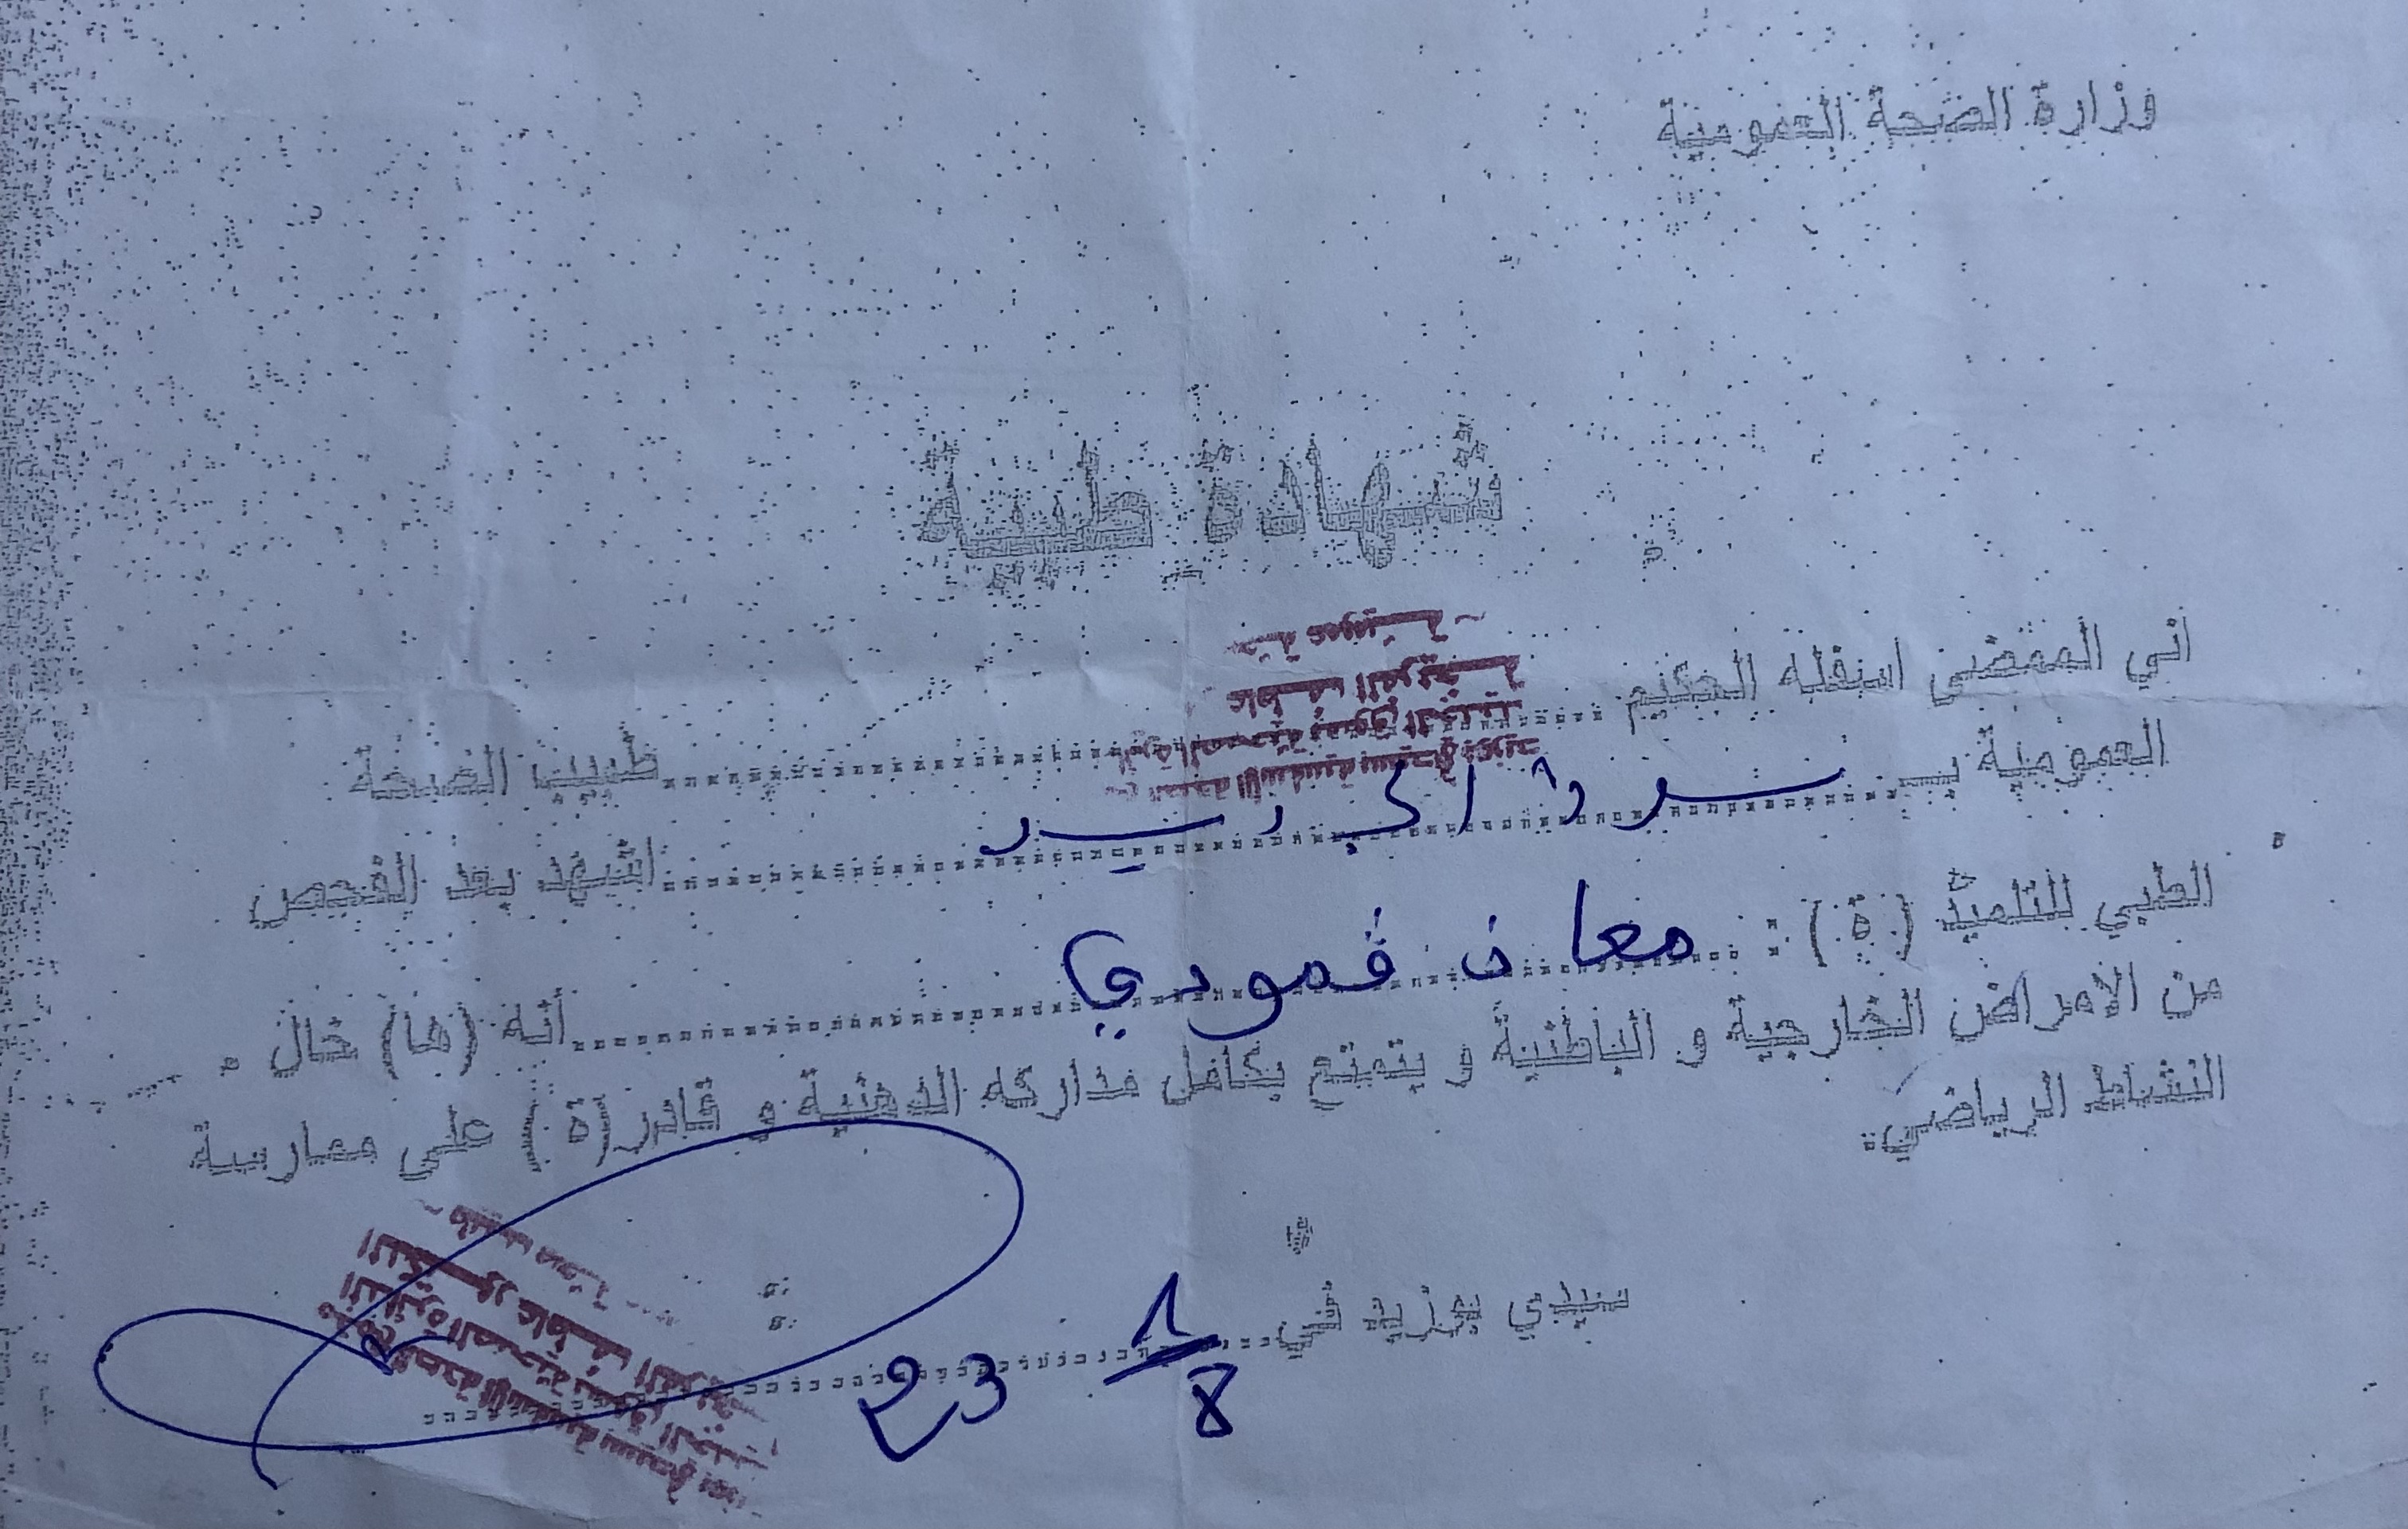 وزارة الصحة العمومية
شهادة طبية
اني الممضى اسفله الحكيم .......... طبيب الصحة
العمومية بـ سوق الجديد .......... اشهد بعد الفحص
الطبي للتلميذ (ة) : معاذ قمودي .......... انه (ها) خال
من الامراض الخارجية و الباطنية و يتمتع بكامل مداركه الذهنية و قادر(ة) على ممارسة
النشاط الرياضي.
سيدي بوزيد في .......... 1/8 23